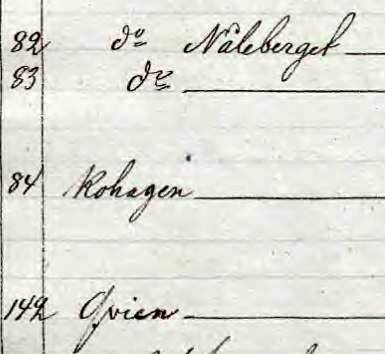 82 do Nåleberget
83 do
84 Kohagen
142 Qvien